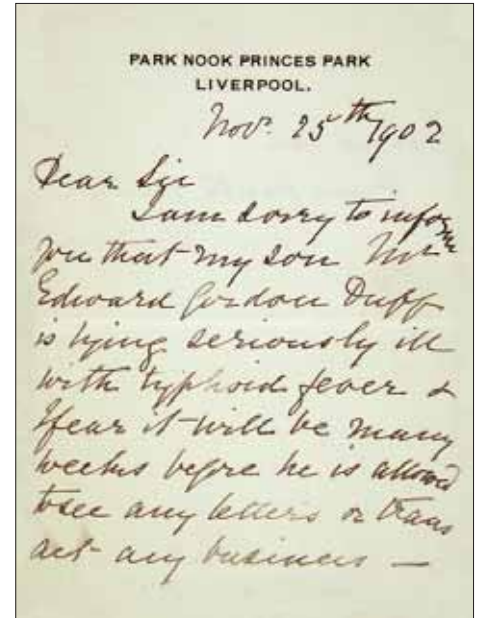 PARK NOOK PRINCES PARK
LIVERPOOL.
Novr. 25th 1902
Dear Sir
I am sorry to inform
you that my son Mr
Edward Gordon Duff
is lying seriously ill
with typhoid fever &
I fear it will be many
weeks before he is allowed
to see any letters or trans
act any business —